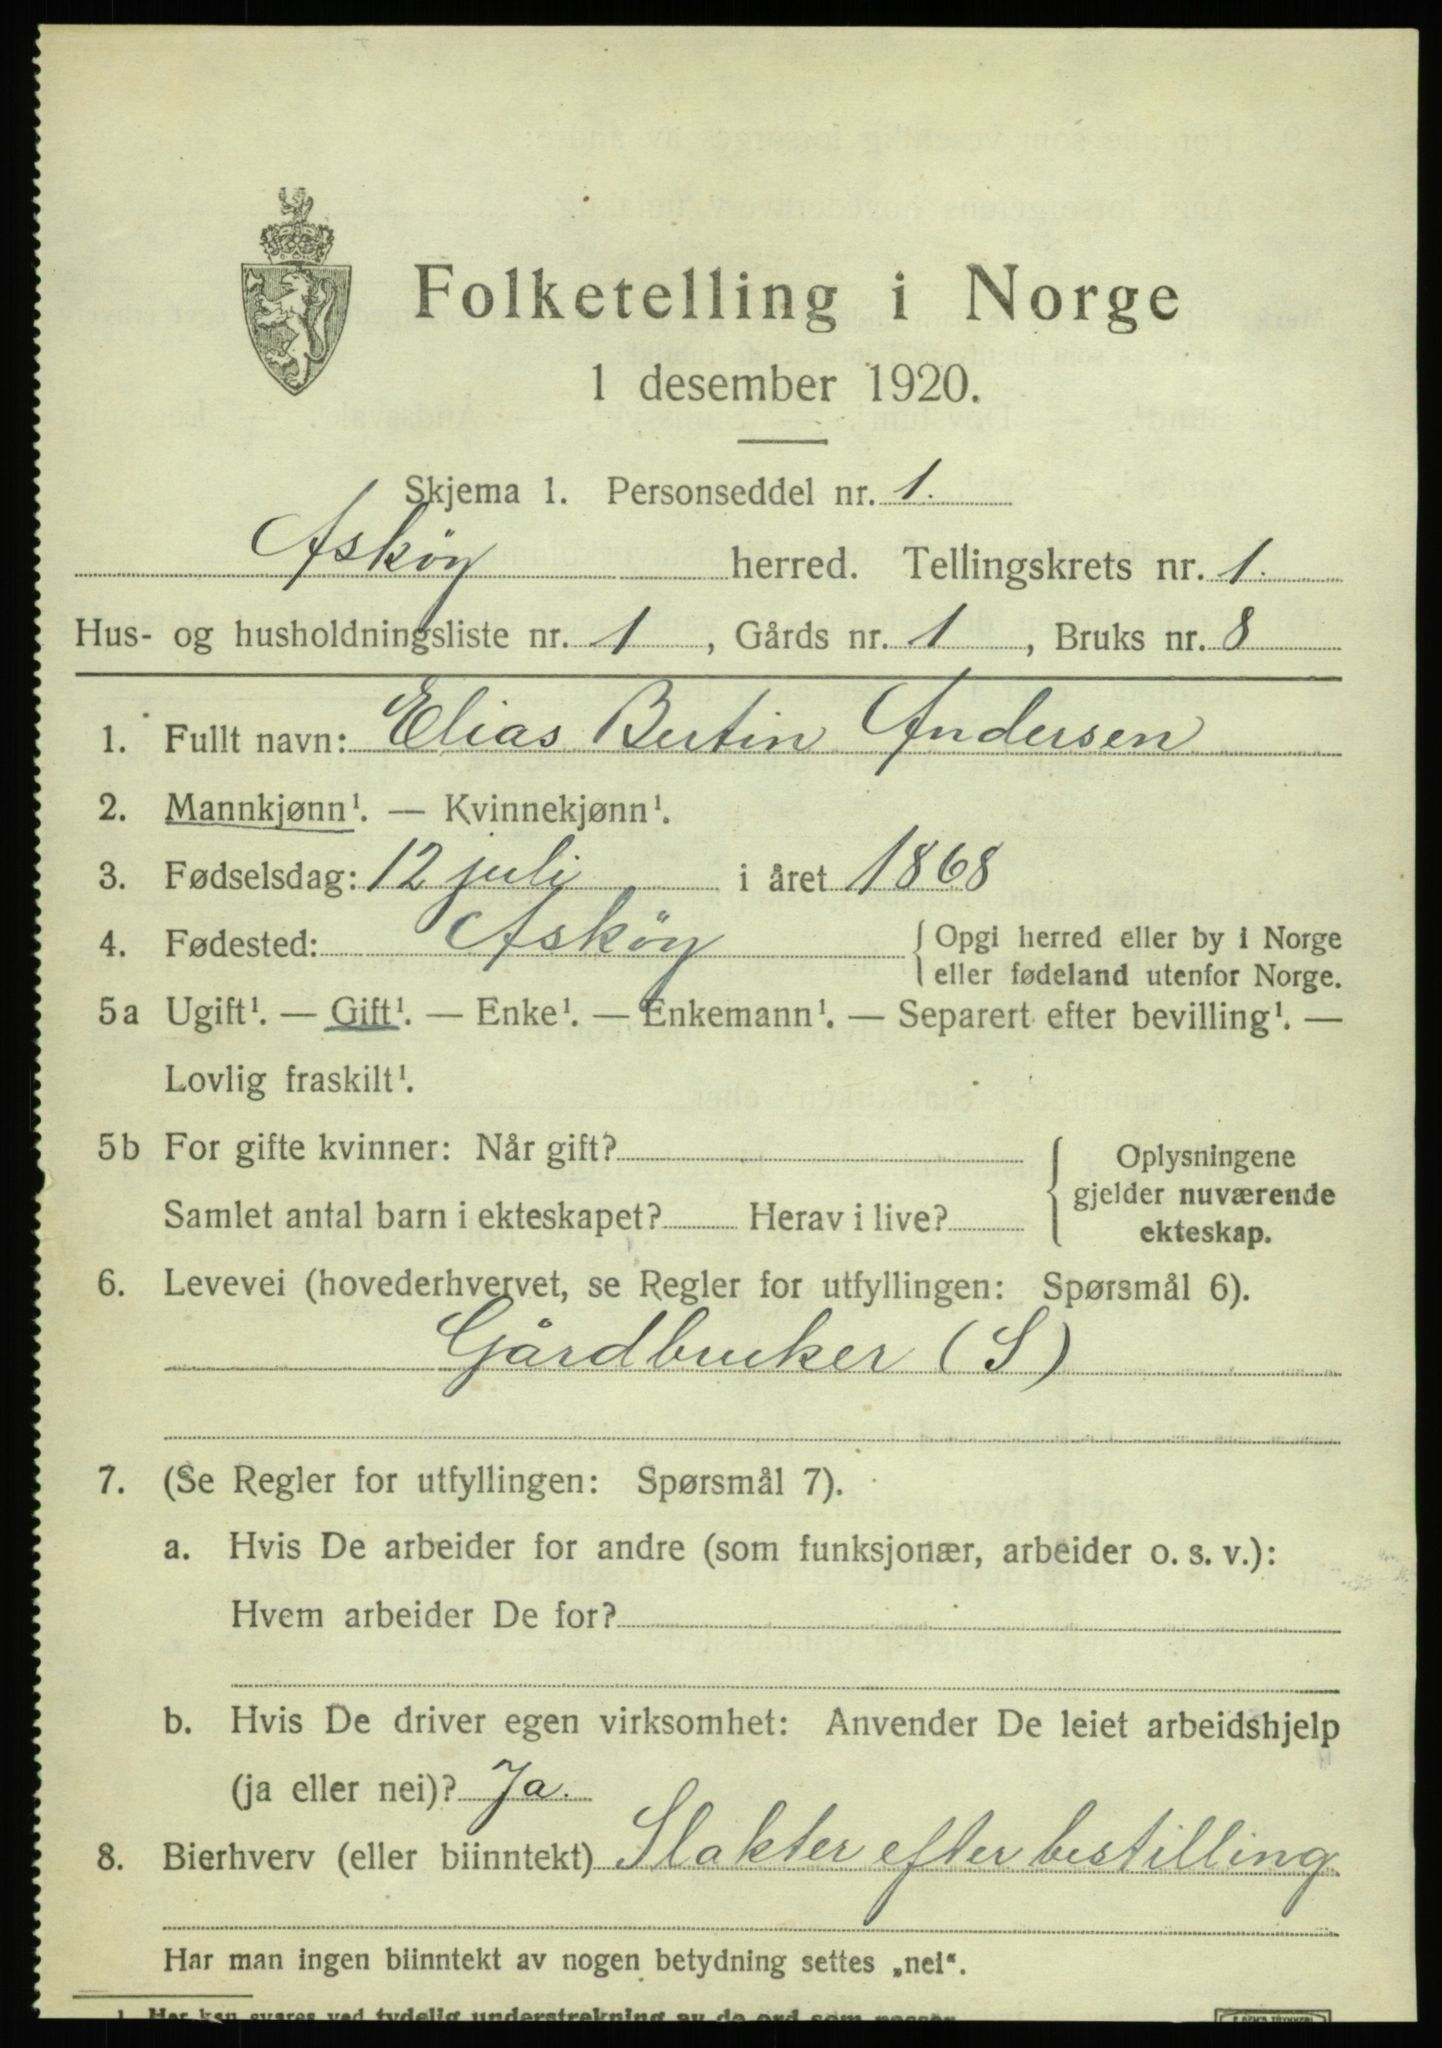 Folketelling i Norge
1 desember 1920.
Skjema 1. Personseddel nr. 1.
Askøy herred. Tellingskrets nr. 1.
Hus- og husholdningsliste nr. 1, Gårds nr. 1, Bruks nr. 8
1. Fullt navn: Elias Bertin Andersen
2. Mannkjønn¹. — Kvinnekjønn¹.
3. Fødselsdag: 12 juli i året 1868
4. Fødested: Askøy { Opgi herred eller by i Norge
eller fødeland utenfor Norge.
5a Ugift¹. — Gift¹. — Enke¹. — Enkemann¹. — Separert efter bevilling¹. —
Lovlig fraskilt¹.
5b For gifte kvinner: Når gift? { Oplysningene
gjelder nuværende
Samlet antal barn i ekteskapet? Herav i live?
ekteskap.
6. Levevei (hovederhvervet, se Regler for utfyllingen: Spørsmål 6).
Gårdbruker (S)
7. (Se Regler for utfyllingen: Spørsmål 7).
a. Hvis De arbeider for andre (som funksjonær, arbeider o. s. v.):
Hvem arbeider De for?
b. Hvis De driver egen virksomhet: Anvender De leiet arbeidshjelp
(ja eller nei)? Ja.
8. Bierhverv (eller biinntekt) Slakter efter bestilling
Har man ingen biinntekt av nogen betydning settes „nei“.
1. Her kan svares ved tydelig understrekning av de ord som passer.